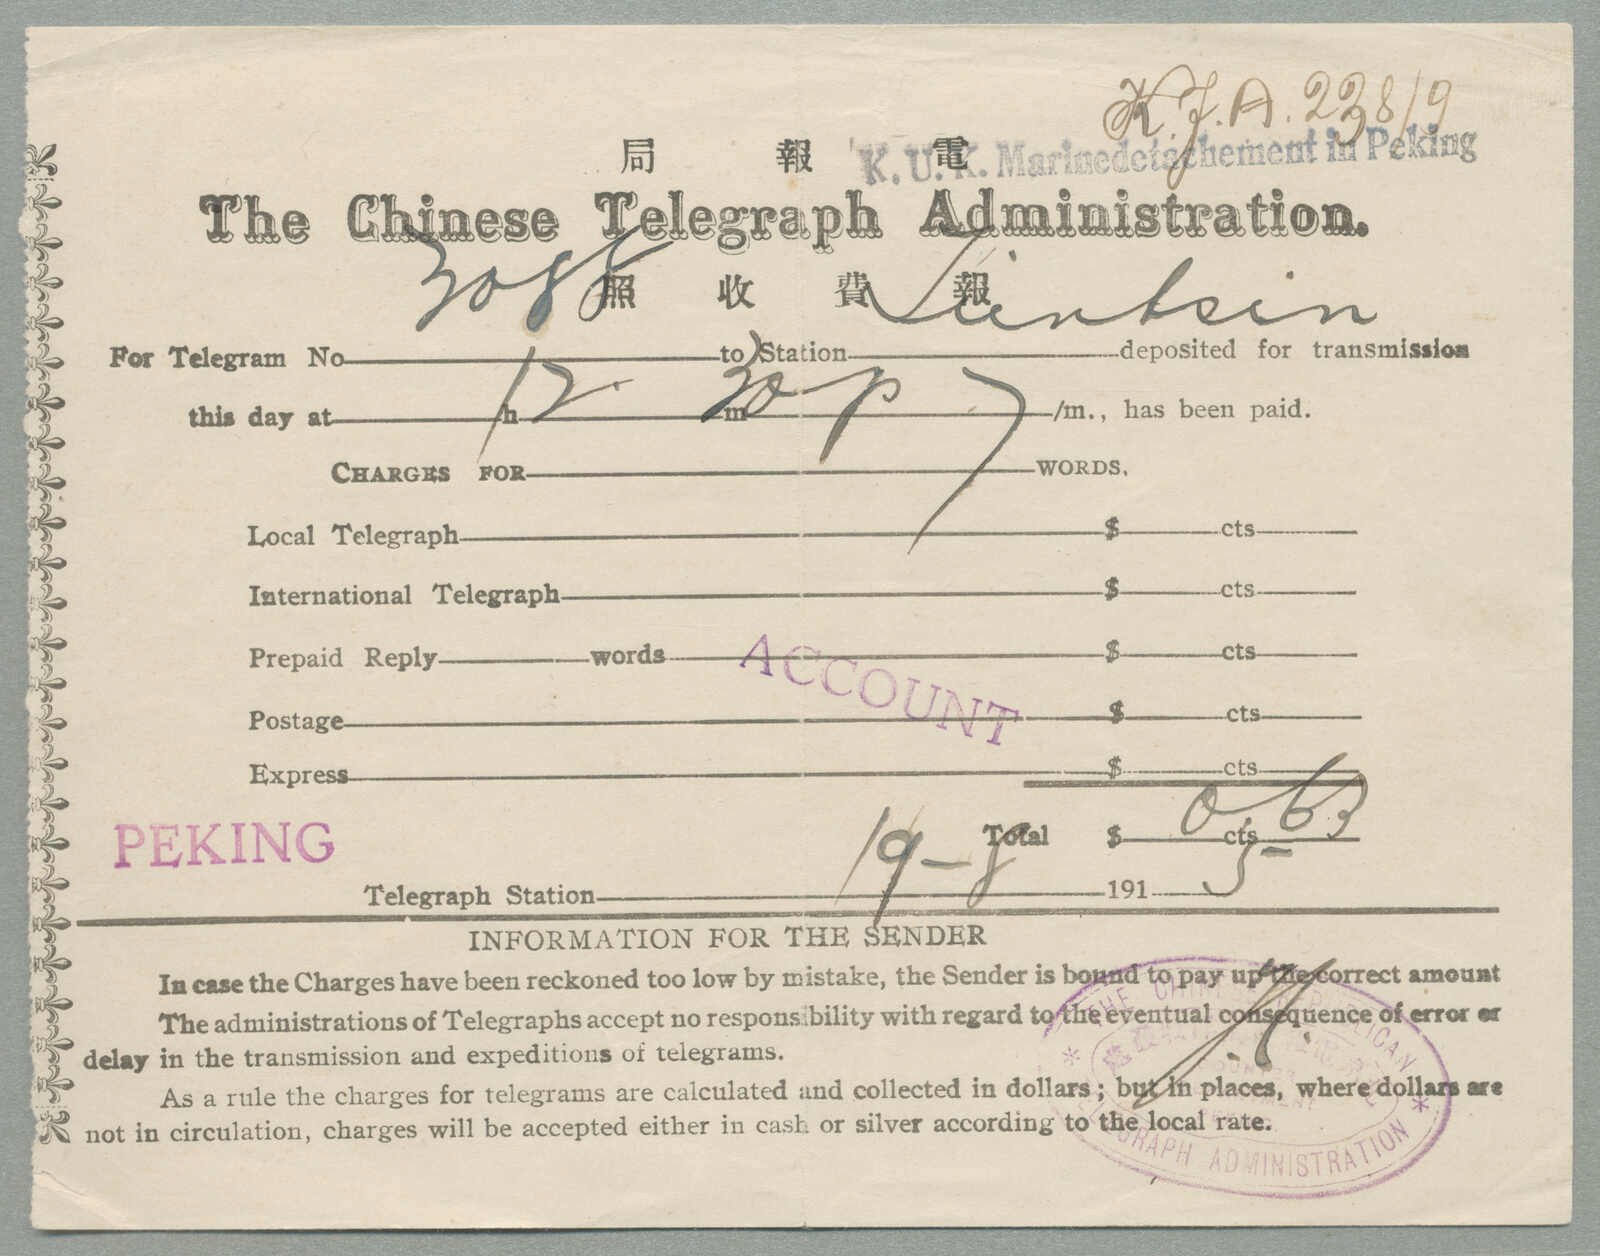 K. J. A. 228/9
局 報 電
K. U. K. Marinedetachement in Peking
The Chinese Telegraph Administration.
照 收 費 報
For Telegram No 3088 to Station Tientsin deposited for transmission
this day at 12 h 30 m p /m., has been paid.
CHARGES FOR 7 WORDS.
Local Telegraph $ cts
International Telegraph $ cts
Prepaid Reply words $ cts
ACCOUNT
Postage $ cts
Express $ cts
Total $ 0 cts 63
PEKING
Telegraph Station 19-8 1915
INFORMATION FOR THE SENDER
In case the Charges have been reckoned too low by mistake, the Sender is bound to pay up the correct amount
The administrations of Telegraphs accept no responsibility with regard to the eventual consequence of error or
delay in the transmission and expeditions of telegrams.
As a rule the charges for telegrams are calculated and collected in dollars; but in places, where dollars are
not in circulation, charges will be accepted either in cash or silver according to the local rate.
THE
TELEGRAPH ADMINISTRATION